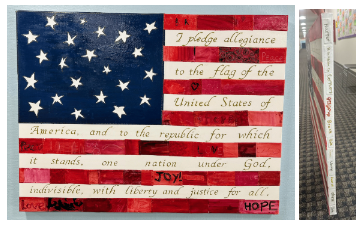 I pledge allegiance
to the flag of the
United States of
America, and to the republic for which
it stands, one nation under God,
JOY!
indivisible, with liberty and justice for all.
Love HOPE